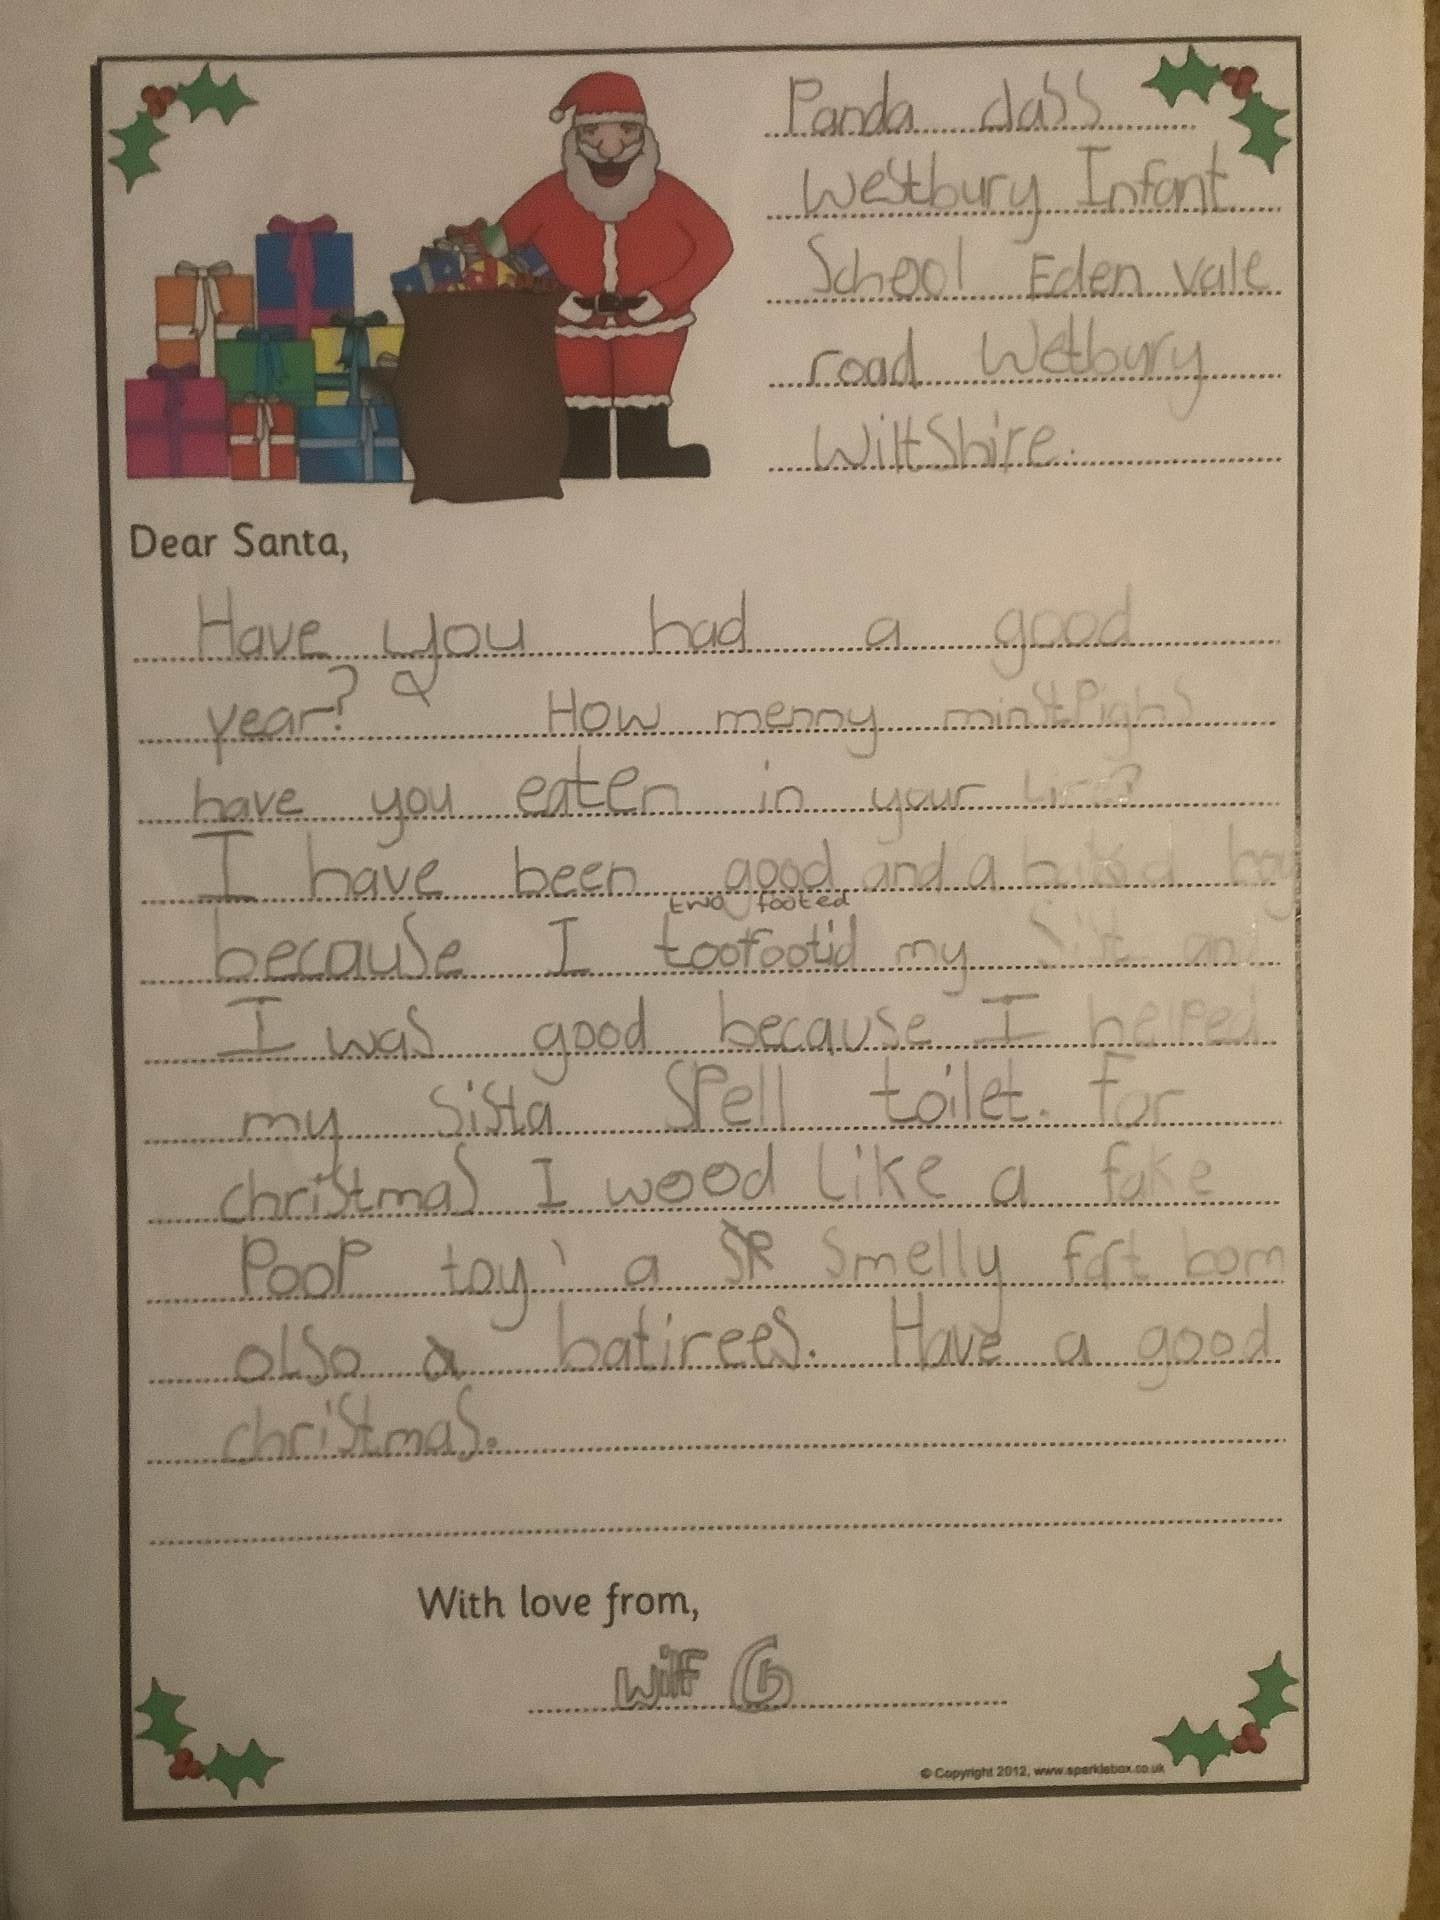 Panda class
Westbury Infant
School Eden vale
road Wetbury
Wiltshire.
Dear Santa,
Have you had a good
year? &
How menny minstpighs
have you eaten in your
I have been good and a boy
two footed
because I tootfootid my and
I was good because I helped
my sista spell toilet. For
christmas I wood like a fake
Poop toy, a smelly fart bom
olso a batirees. Have a good
christmas.
With love from,
Wilf G
© Copyright 2012, www.sparklebox.co.uk